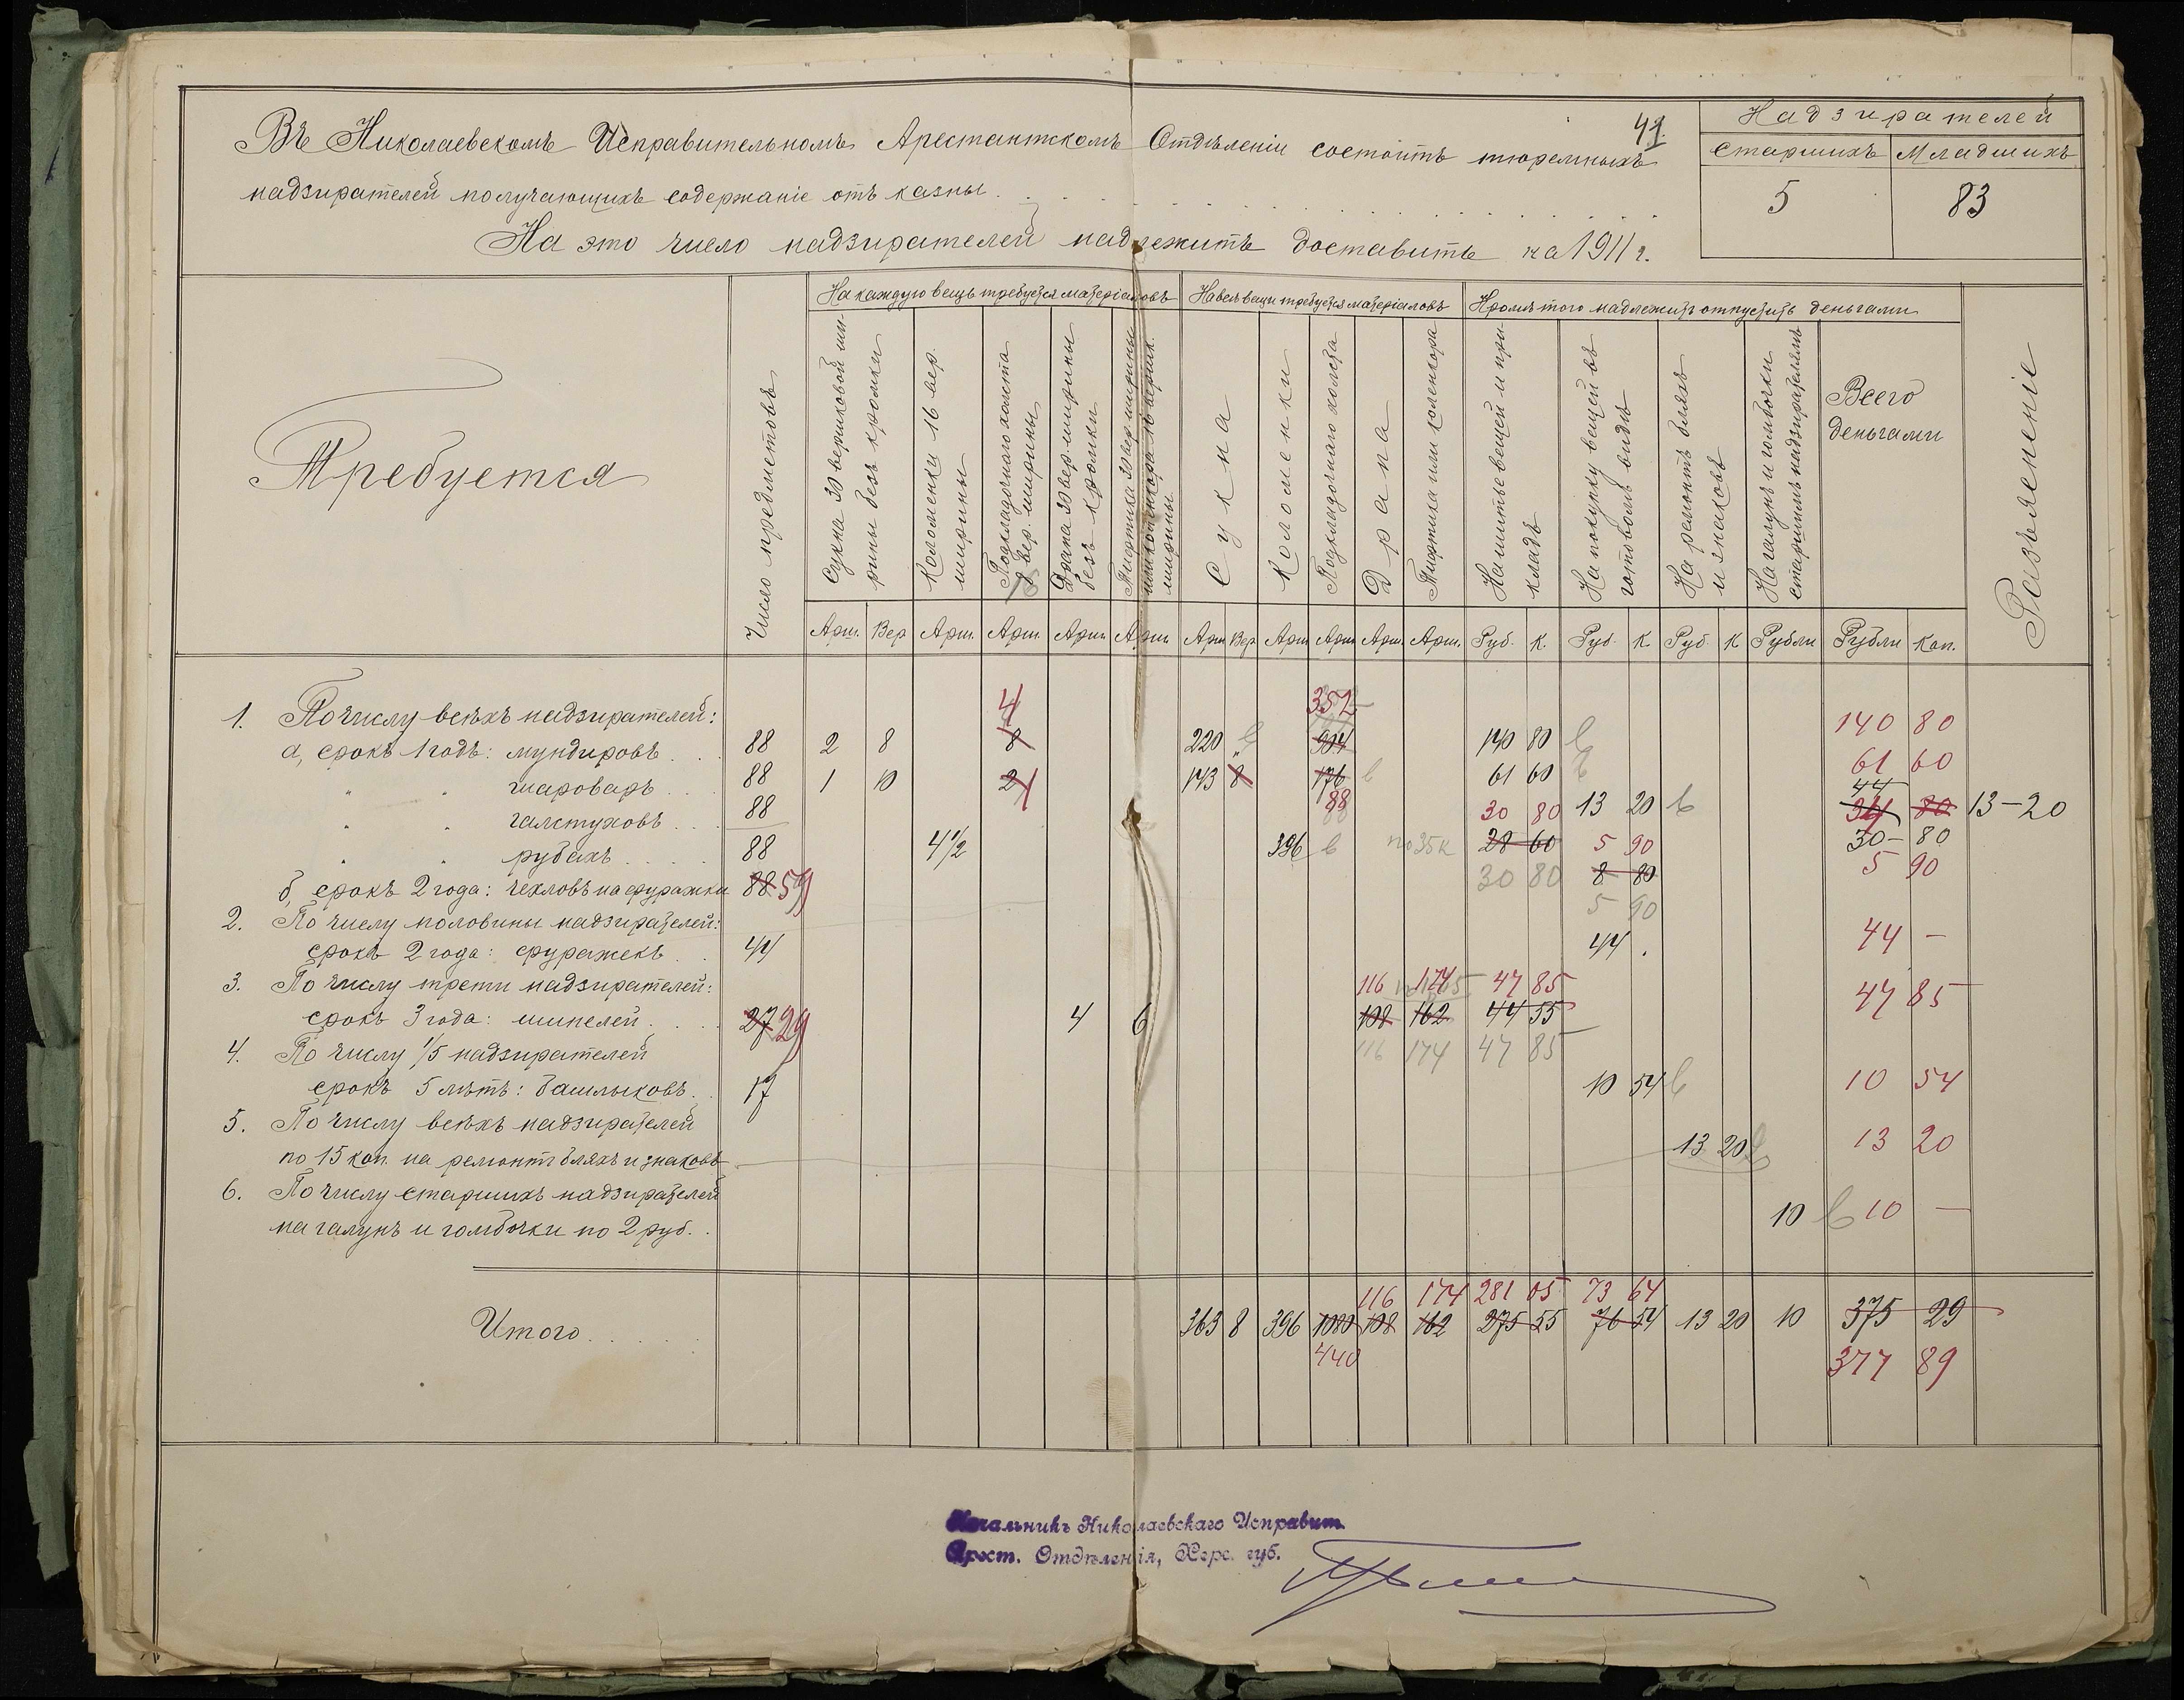 41.
Въ Николаевскомъ Исправительномъ Арестантскомъ Отдѣленіи состоитъ тюремныхъ
надзирателей получающихъ содержаніе отъ казны
На это число надзирателей надлежитъ доставить на 1911 г.
Надзирателей
Старшихъ Младшихъ
5 83
Требуется
Число предметовъ
На каждую вещь требуется матеріаловъ
Сукна 30 вершковой ширины безъ кромки
Коломенки 16 вер. ширины
Подкладочнаго холста вер. ширины
Драпа 30 вер. ширины безъ кромки
На всѣ вещи требуется матеріаловъ
Сукна
Коломенки
Подкладочнаго холста
Драпа
или коленкора
Кромѣ того надлежитъ отпустить деньгами
На шитье вещей и приклада
На покупку вещей въ готовомъ видѣ
На ремонтъ бляхъ и знаковъ
На галунъ и гомбочки старшимъ надзирателямъ
Всего деньгами
Разъясненіе
Арш. Вер. Арш. Арш. Арш. Арш. Арш. Вер. Арш. Арш. Арш. Арш. Руб. К. Руб. К. Руб. К Рубли Рубли Коп.
1. По числу всѣхъ надзирателей: 4 352
а, срокъ 1 годъ: мундировъ 88 2 8 8 220 „ 140 80 140 80
" . шароваръ 88 1 10 2 1 143 8 176 88 61 60 61 60
" . галстуховъ 88 13 20 44 13-20
. . рубахъ 88 4 1/2 396 по 35 к 30 80 28 60 30 80 30-80
б, срокъ 2 года: чехловъ на фуражки 88 59 5 90 8 80 5 90 5 90
2. По числу половины надзирателей:
срокъ 2 года: фуражекъ 44 44 . 44 -
3. По числу трети надзирателей: 116 174 47 85
срокъ 3 года: шинелей 27 29 4 6 108 162 44 55 47 85
116 174 47 85
4. По числу 1/5 надзирателей
срокъ 5 лѣтъ: башлыковъ 17 10 54 10 54
5. По числу всѣхъ надзирателей
по 15 коп. на ремонтъ бляхъ и знаковъ 13 20 13 20
6. По числу старшихъ надзирателей
на галунъ и гомбочки по 2 руб. 10 10 -
116 174 281 05 73 64
Итого 363 8 396 1080 108 162 275 55 76 54 13 20 10 375 29
440 377 89
Начальникъ Николаевскаго Исправит.
Арест. Отдѣленія, Херс. губ.